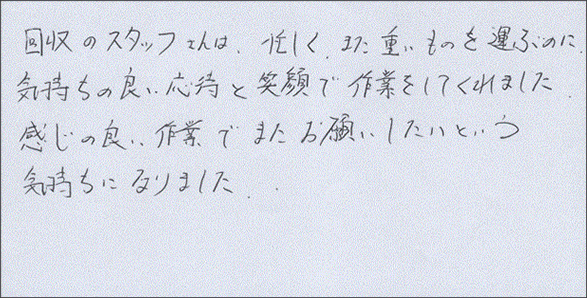 回収のスタッフさんは、忙しく、また重いものを運ぶのに、
気持ちの良い応待と笑顔で作業をしてくれました。
感じの良い作業でまたお願いしたいという
気持ちになりました。